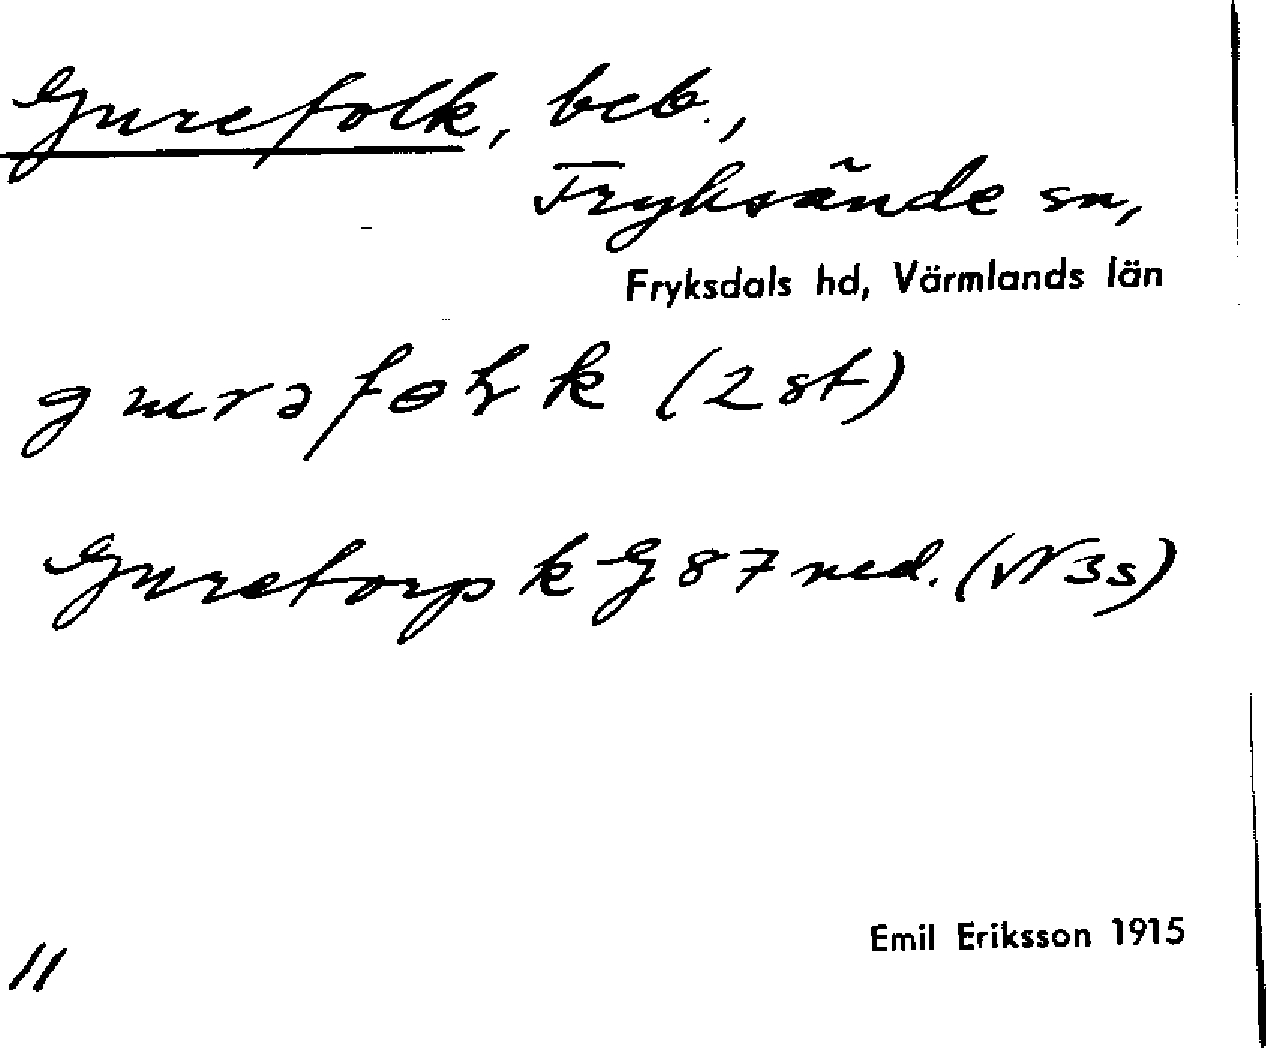 Gurefolk, beb.,
Fryksände sn,
Fryksdals hd, Värmlands län
(2 st)
Guretorp k G 87 ned. (VN 3s)
Emil Eriksson 1915
11